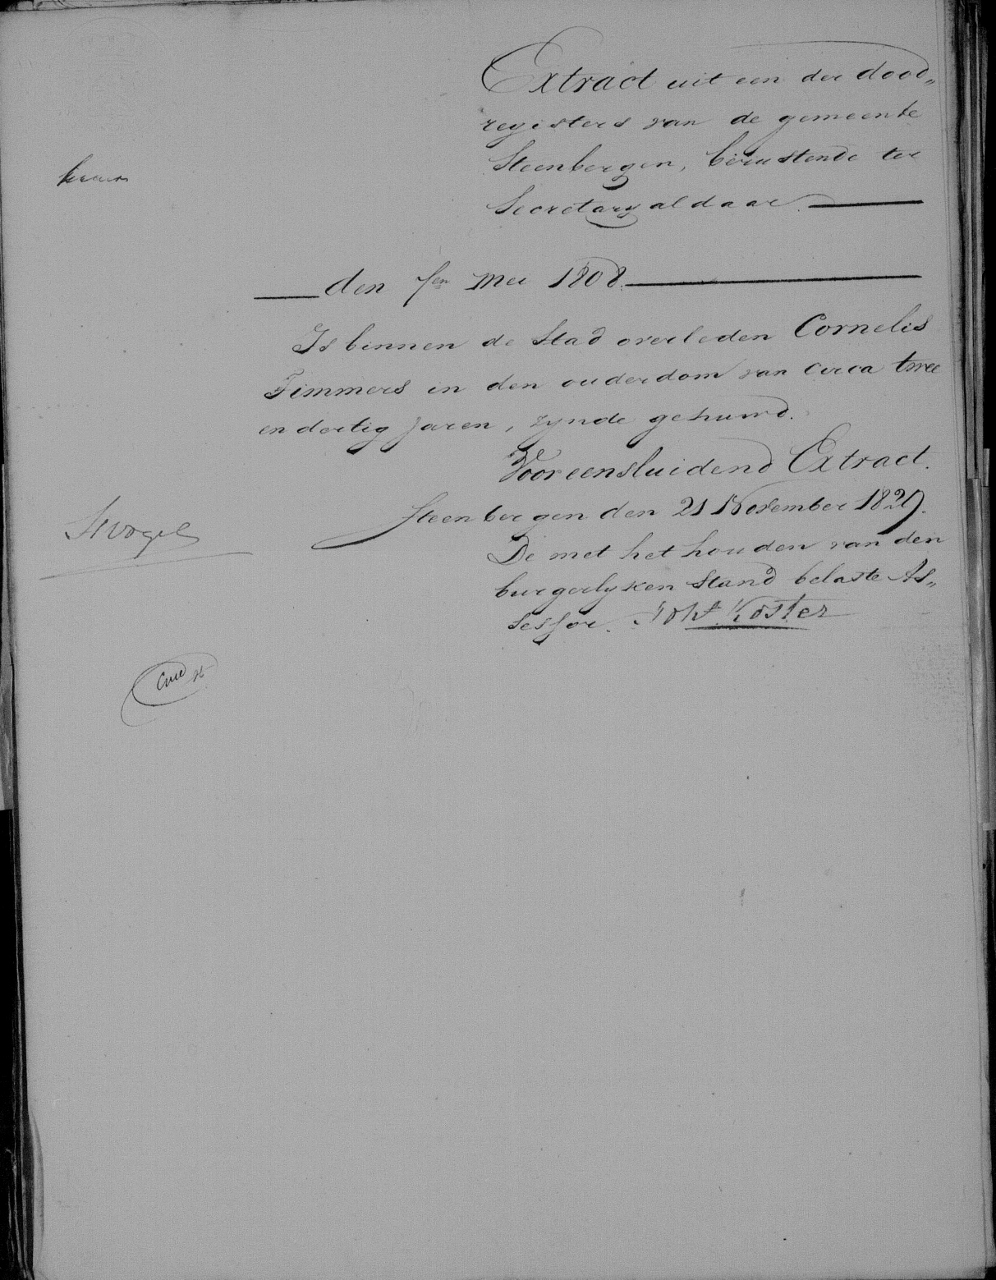 Extract uit een der dood„
registers van de gemeente
Steenbergen, berustende ter
Secretary aldaar.
den 1en Mei 1808.
Is binnen de Stad overleden Cornelis
Timmers in den ouderdom van circa twee
en dertig jaren, zynde gehuwd.
Vooreensluidend Extract.
Steenbergen den 21 November 1827.
De met het houden van den
burgerlyken Stand belaste As„
sessor. Koster